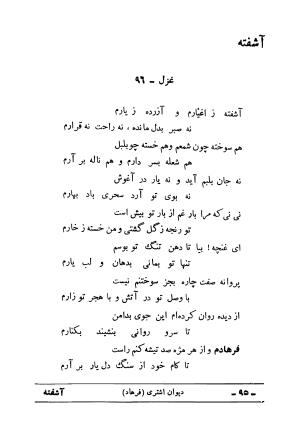 آشفته
غزل - ۹۶
آشفته ز اغیّارم و آزرده ز یارم
نه صبر بدل مانده ، نه راحت نه قرارم
هم سوخته چون شمعم وهم خسته چوبلبل
هم شعله بسر دارم و هم ناله بر آرم
نه جان بلبم آید و نه یار در آغوش
نه بوی تو آرد سحری باد بهارم
نی نی که مرا بار غم از بار تو بیش است
تو رنجه ز گل گشتی و من خسته ز خارم
ای غنچه ! بیا تا دهن تنگ تو بوسم
تنها تو بمانی بدهان و لب یارم
پروانه صفت چاره بجز سوختنم نیست
با وصل تو در آتش و با هجر تو زارم
از دیده روان کرده‌ام این جوی بدامن
تا سرو روانی بنشیند بکنارم
فرهادم و از هر مژه صد تیشه کنم راست
تا کام خود از سنگ دل یار بر آرم
- ۹۵ -
دیوان اشتری (فرهاد)
آشفته